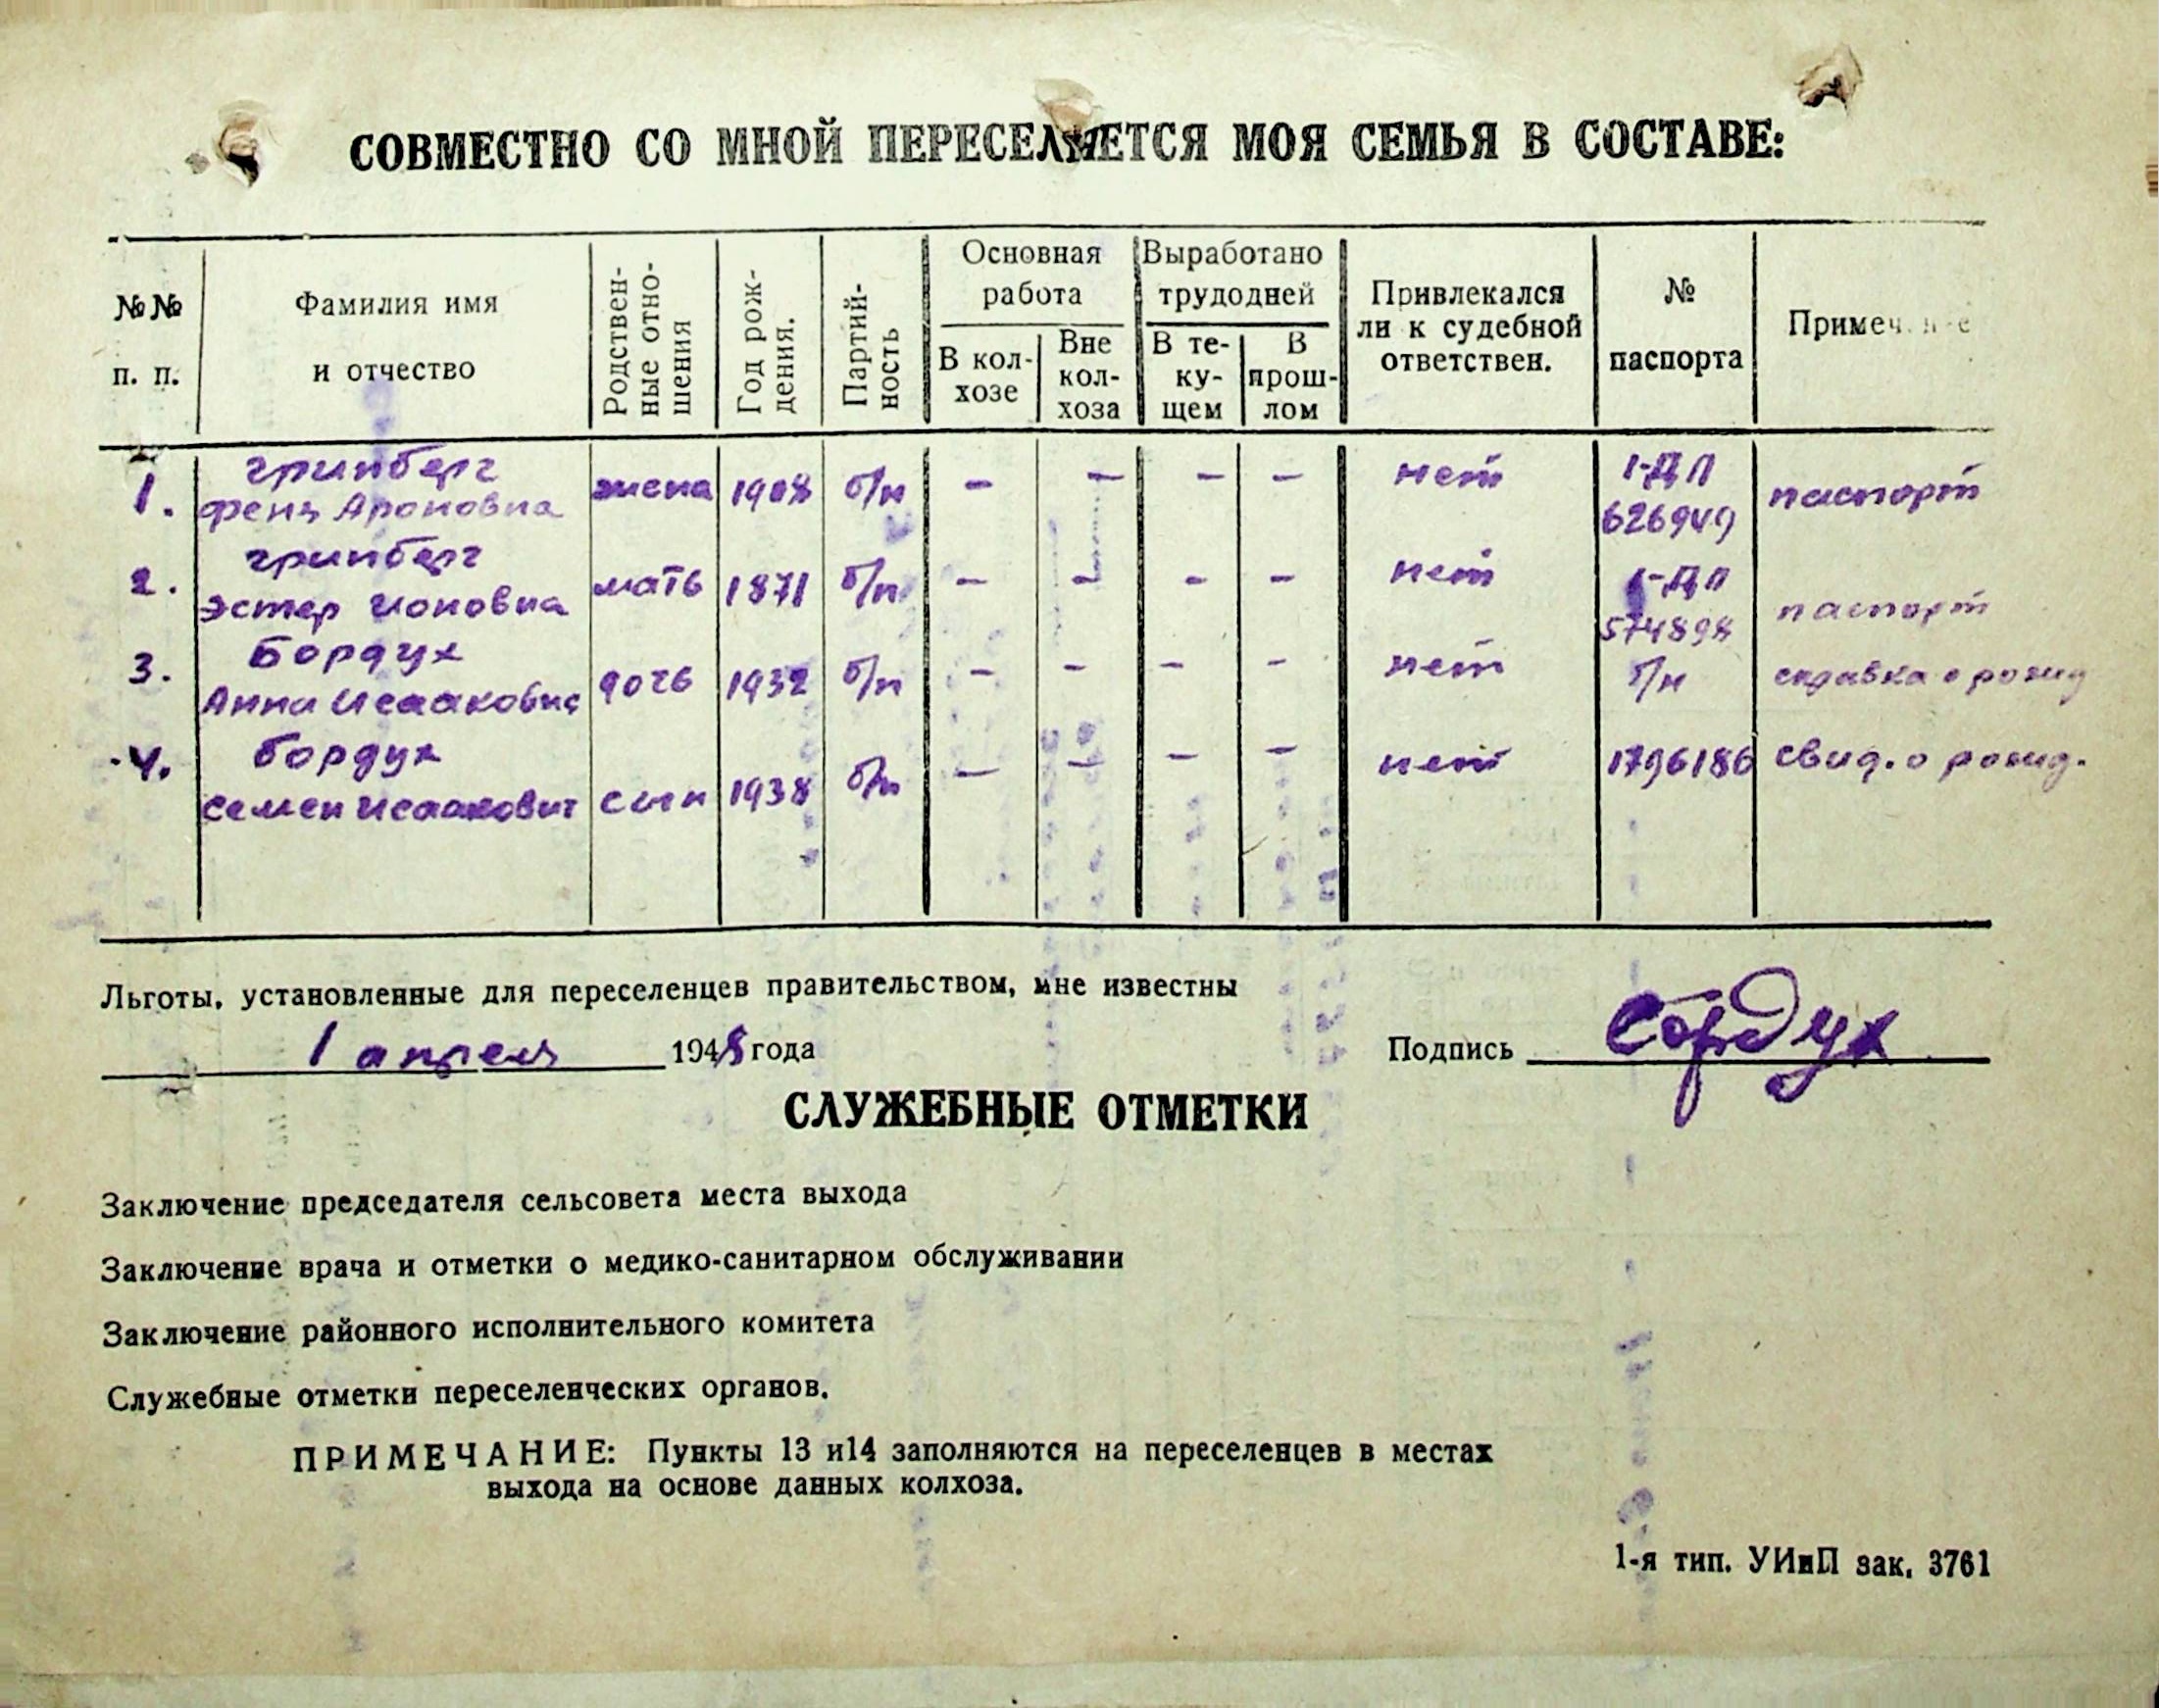 СОВМЕСТНО СО МНОЙ ПЕРЕСЕЛЯЕТСЯ МОЯ СЕМЬЯ В СОСТАВЕ:
№№ п. п.
Фамилия имя и отчество
Родствен-
ные отно-
шения
Год рож-
дения.
Партий-
ность
Основная
работа
В кол-
хозе
Вне
кол-
хоза
Выработано
трудодней
В те-
ку-
щем
В
прош-
лом
Привлекался
ли к судебной
ответствен.
№
паспорта
Примеч
1. Гринберг
Ароновна жена 1908 б/п - - - - нет I-ДЛ 626949 паспорт
2. Гринберг
Эстер Ионовна мать 1871 б/п - - - - нет 574898 паспорт
3. Бордух
Анна Исааковна дочь 1932 б/п - - - - нет б/н справка о рожд
4. Бордух
Семен Исаакович сын 1938 б/п - - - - нет 1796186 свид. о рожд.
Льготы, установленные для переселенцев правительством, мне известны
1 апреля 1948 года
Подпись Бордух
СЛУЖЕБНЫЕ ОТМЕТКИ
Заключение председателя сельсовета места выхода
Заключение врача и отметки о медико-санитарном обслуживании
Заключение районного исполнительного комитета
Служебные отметки переселенческих органов.
ПРИМЕЧАНИЕ: Пункты 13 и14 заполняются на переселенцев в местах
выхода на основе данных колхоза.
1-я тип. УИиП зак. 3761